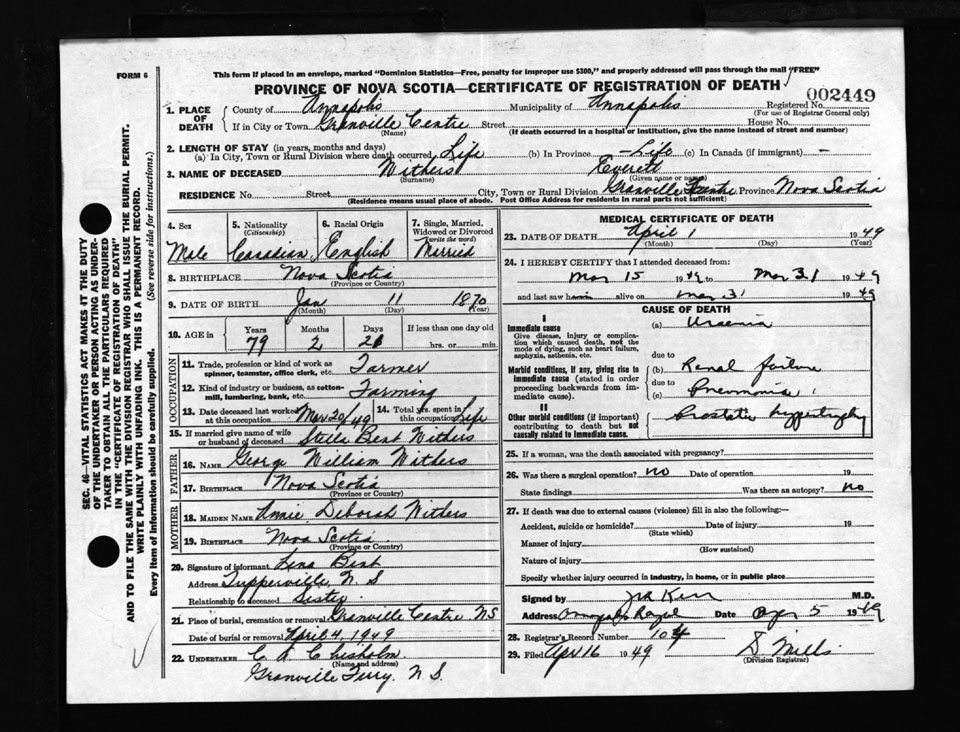 FORM 6
This form if placed in an envelope, marked "Dominion Statistics—Free, penalty for improper use $300," and properly addressed will pass through the mail "FREE"
PROVINCE OF NOVA SCOTIA—CERTIFICATE OF REGISTRATION OF DEATH
002449
1. PLACE OF DEATH
County of Annapolis Municipality of Annapolis Registered No.
(For use of Registrar General only)
If in City or Town Granville Centre Street House No.
(Name) (If death occurred in a hospital or institution, give the name instead of street and number)
2. LENGTH OF STAY (in years, months and days)
(a) In City, Town or Rural Division where death occurred Life (b) In Province - Life (c) In Canada (if immigrant) -
3. NAME OF DECEASED Withers Everett
(Surname) (Given name or names)
RESIDENCE No. Street City, Town or Rural Division Granville Centre Province Nova Scotia
(Residence means usual place of abode. Post Office Address for residents in rural parts not sufficient)
4. Sex
Male
5. Nationality
(Citizenship)
Canadian
6. Racial Origin
English
7. Single, Married, Widowed or Divorced
(write the word)
Married
8. BIRTHPLACE Nova Scotia
(Province or Country)
9. DATE OF BIRTH Jan 11 1870
(Month) (Day) (Year)
10. AGE in
Years Months Days If less than one day old
79 2 21 hrs. or min.
OCCUPATION
11. Trade, profession or kind of work as spinner, teamster, office clerk, etc. Farmer
12. Kind of industry or business, as cotton-mill, lumbering, bank, etc. Farming
13. Date deceased last worked at this occupation Mar 20/49 14. Total yrs. spent in this occupation Life
15. If married give name of wife or husband of deceased Stella Bent Withers
FATHER
16. NAME George William Withers
17. BIRTHPLACE Nova Scotia
(Province or Country)
MOTHER
18. MAIDEN NAME Annie Deborah Withers
19. BIRTHPLACE Nova Scotia
(Province or Country)
20. Signature of informant Lena Bent
Address Tupperville, N. S
Relationship to deceased Sister
21. Place of burial, cremation or removal Granville Centre NS
Date of burial or removal April 4, 1949
22. UNDERTAKER C A Chisholm
(Name and address)
Granville Ferry. N. S.
MEDICAL CERTIFICATE OF DEATH
23. DATE OF DEATH April 1 1949
(Month) (Day) (Year)
24. I HEREBY CERTIFY that I attended deceased from:
Mar 15 1949 to Mar 31 1949
and last saw him alive on Mar 31 1949
CAUSE OF DEATH
I
Immediate cause
Give disease, injury or complication which caused death, not the mode of dying, such as heart failure, asphyxia, asthenia, etc.
(a) Uraemia
due to
Morbid conditions, if any, giving rise to immediate cause (stated in order proceeding backwards from immediate cause).
(b) Renal failure
due to
(c) Pneumonia
II
Other morbid conditions (if important) contributing to death but not causally related to immediate cause.
Prostatic hypertrophy
25. If a woman, was the death associated with pregnancy?
26. Was there a surgical operation? no Date of operation 19
State findings Was there an autopsy? no
27. If death was due to external causes (violence) fill in also the following:—
Accident, suicide or homicide? Date of injury 19
(State which)
Manner of injury
(How sustained)
Nature of injury
Specify whether injury occurred in industry, in home, or in public place
Signed by Kerr M.D.
Address Annapolis Royal Date Apr 5 1949
28. Registrar's Record Number 104
29. Filed Apr 16 1949 S Mills
(Division Registrar)
SEC. 46—VITAL STATISTICS ACT MAKES IT THE DUTY
OF THE UNDERTAKER OR PERSON ACTING AS UNDER-
TAKER TO OBTAIN ALL THE PARTICULARS REQUIRED
IN THE "CERTIFICATE OF REGISTRATION OF DEATH"
AND TO FILE THE SAME WITH THE DIVISION REGISTRAR WHO SHALL ISSUE THE BURIAL PERMIT.
WRITE PLAINLY WITH UNFADING INK. THIS IS A PERMANENT RECORD.
Every item of information should be carefully supplied. (See reverse side for instructions.)